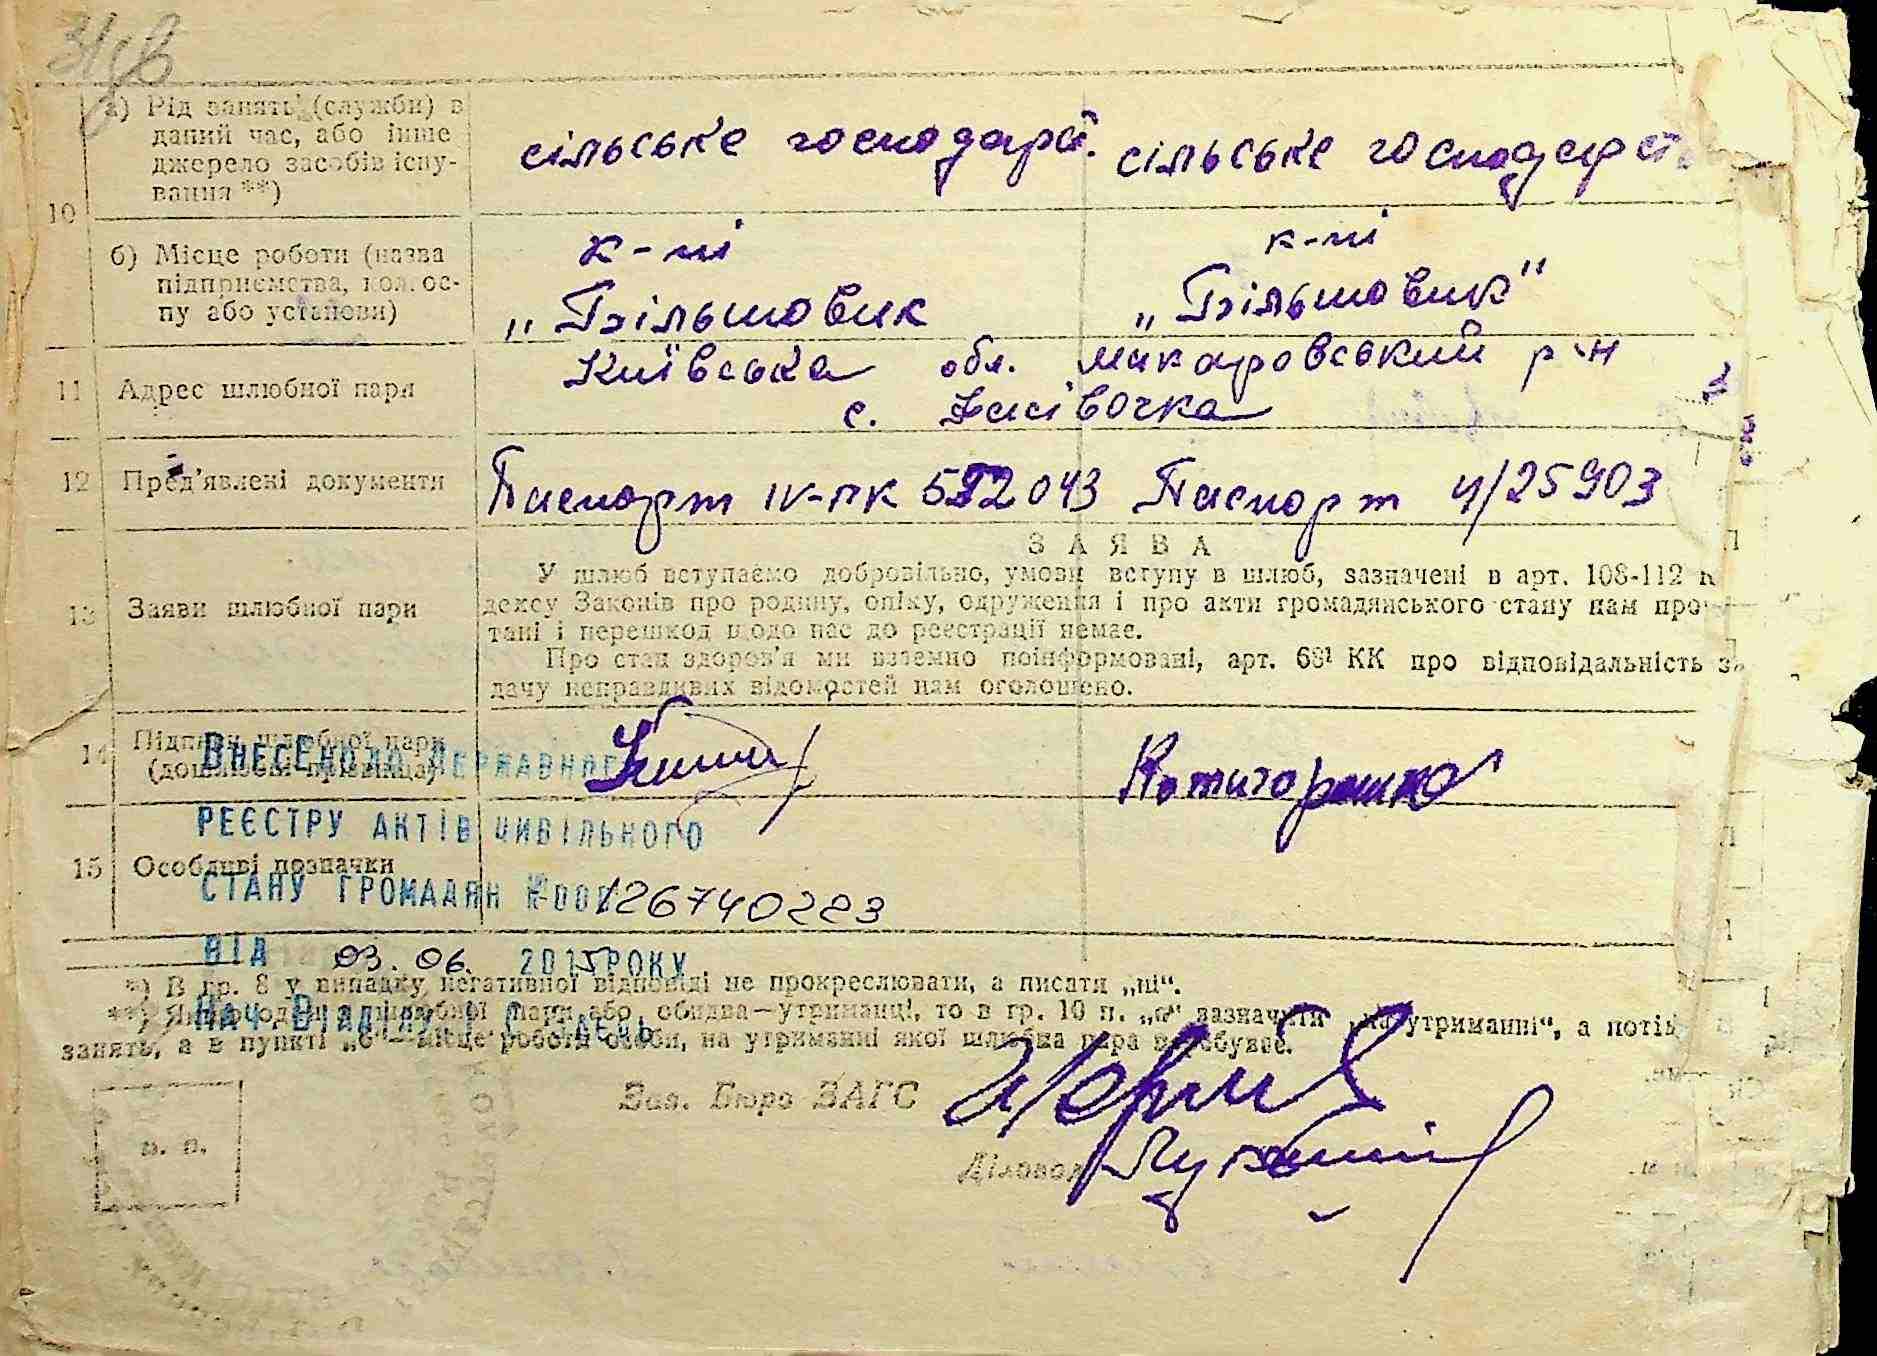 10
а) Рід занять (служби) в
даний час, або інше
джерело засобів існу-
вання **)
сільське господарст.
сільське господарст
б) Місце роботи (назва
підприємства, колгос-
пу або установи)
к-пі
„Більшовик
к-пі
„Більшовик“
11
Адрес шлюбної пари
Київська обл. Макаровський р-н
с.
12
Пред'явлені документи
Паспорт IV-ПК 592043
Паспорт 4/25903
13
Заяви шлюбної пари
ЗАЯВА
У шлюб вступаємо добровільно, умови вступу в шлюб, зазначені в арт. 108-112 К
дексу Законів про родину, опіку, одруження і про акти громадянського стану нам про
тані і перешкод щодо нас до реєстрації немає.
Про стан здоров'я ми взаємно поінформовані, арт. 68¹ КК про відповідальність за
дачу неправдивих відомостей нам оголошено.
14
Підписи шлюбної пари
(дошлюбні прізвища)
Котигорошко
Внесено до Державного
реєстру актів цивільного
15
Особливі позначки
стану громадян №00126740223
від 03.06. 2015 року
Нач. Відділу
*) В гр. 8 у випадку негативної відповіді не прокреслювати, а писати „ні“.
**) Якщо один з шлюбної пари або обидва—утриманці, то в гр. 10 п. „а“ зазначити „на утриманні“, а потім
занять, а в пункті „б“—місце роботи особи, на утриманні якої шлюбна пара перебуває.
Зав. Бюро ЗАГС
м. п.
Діловод